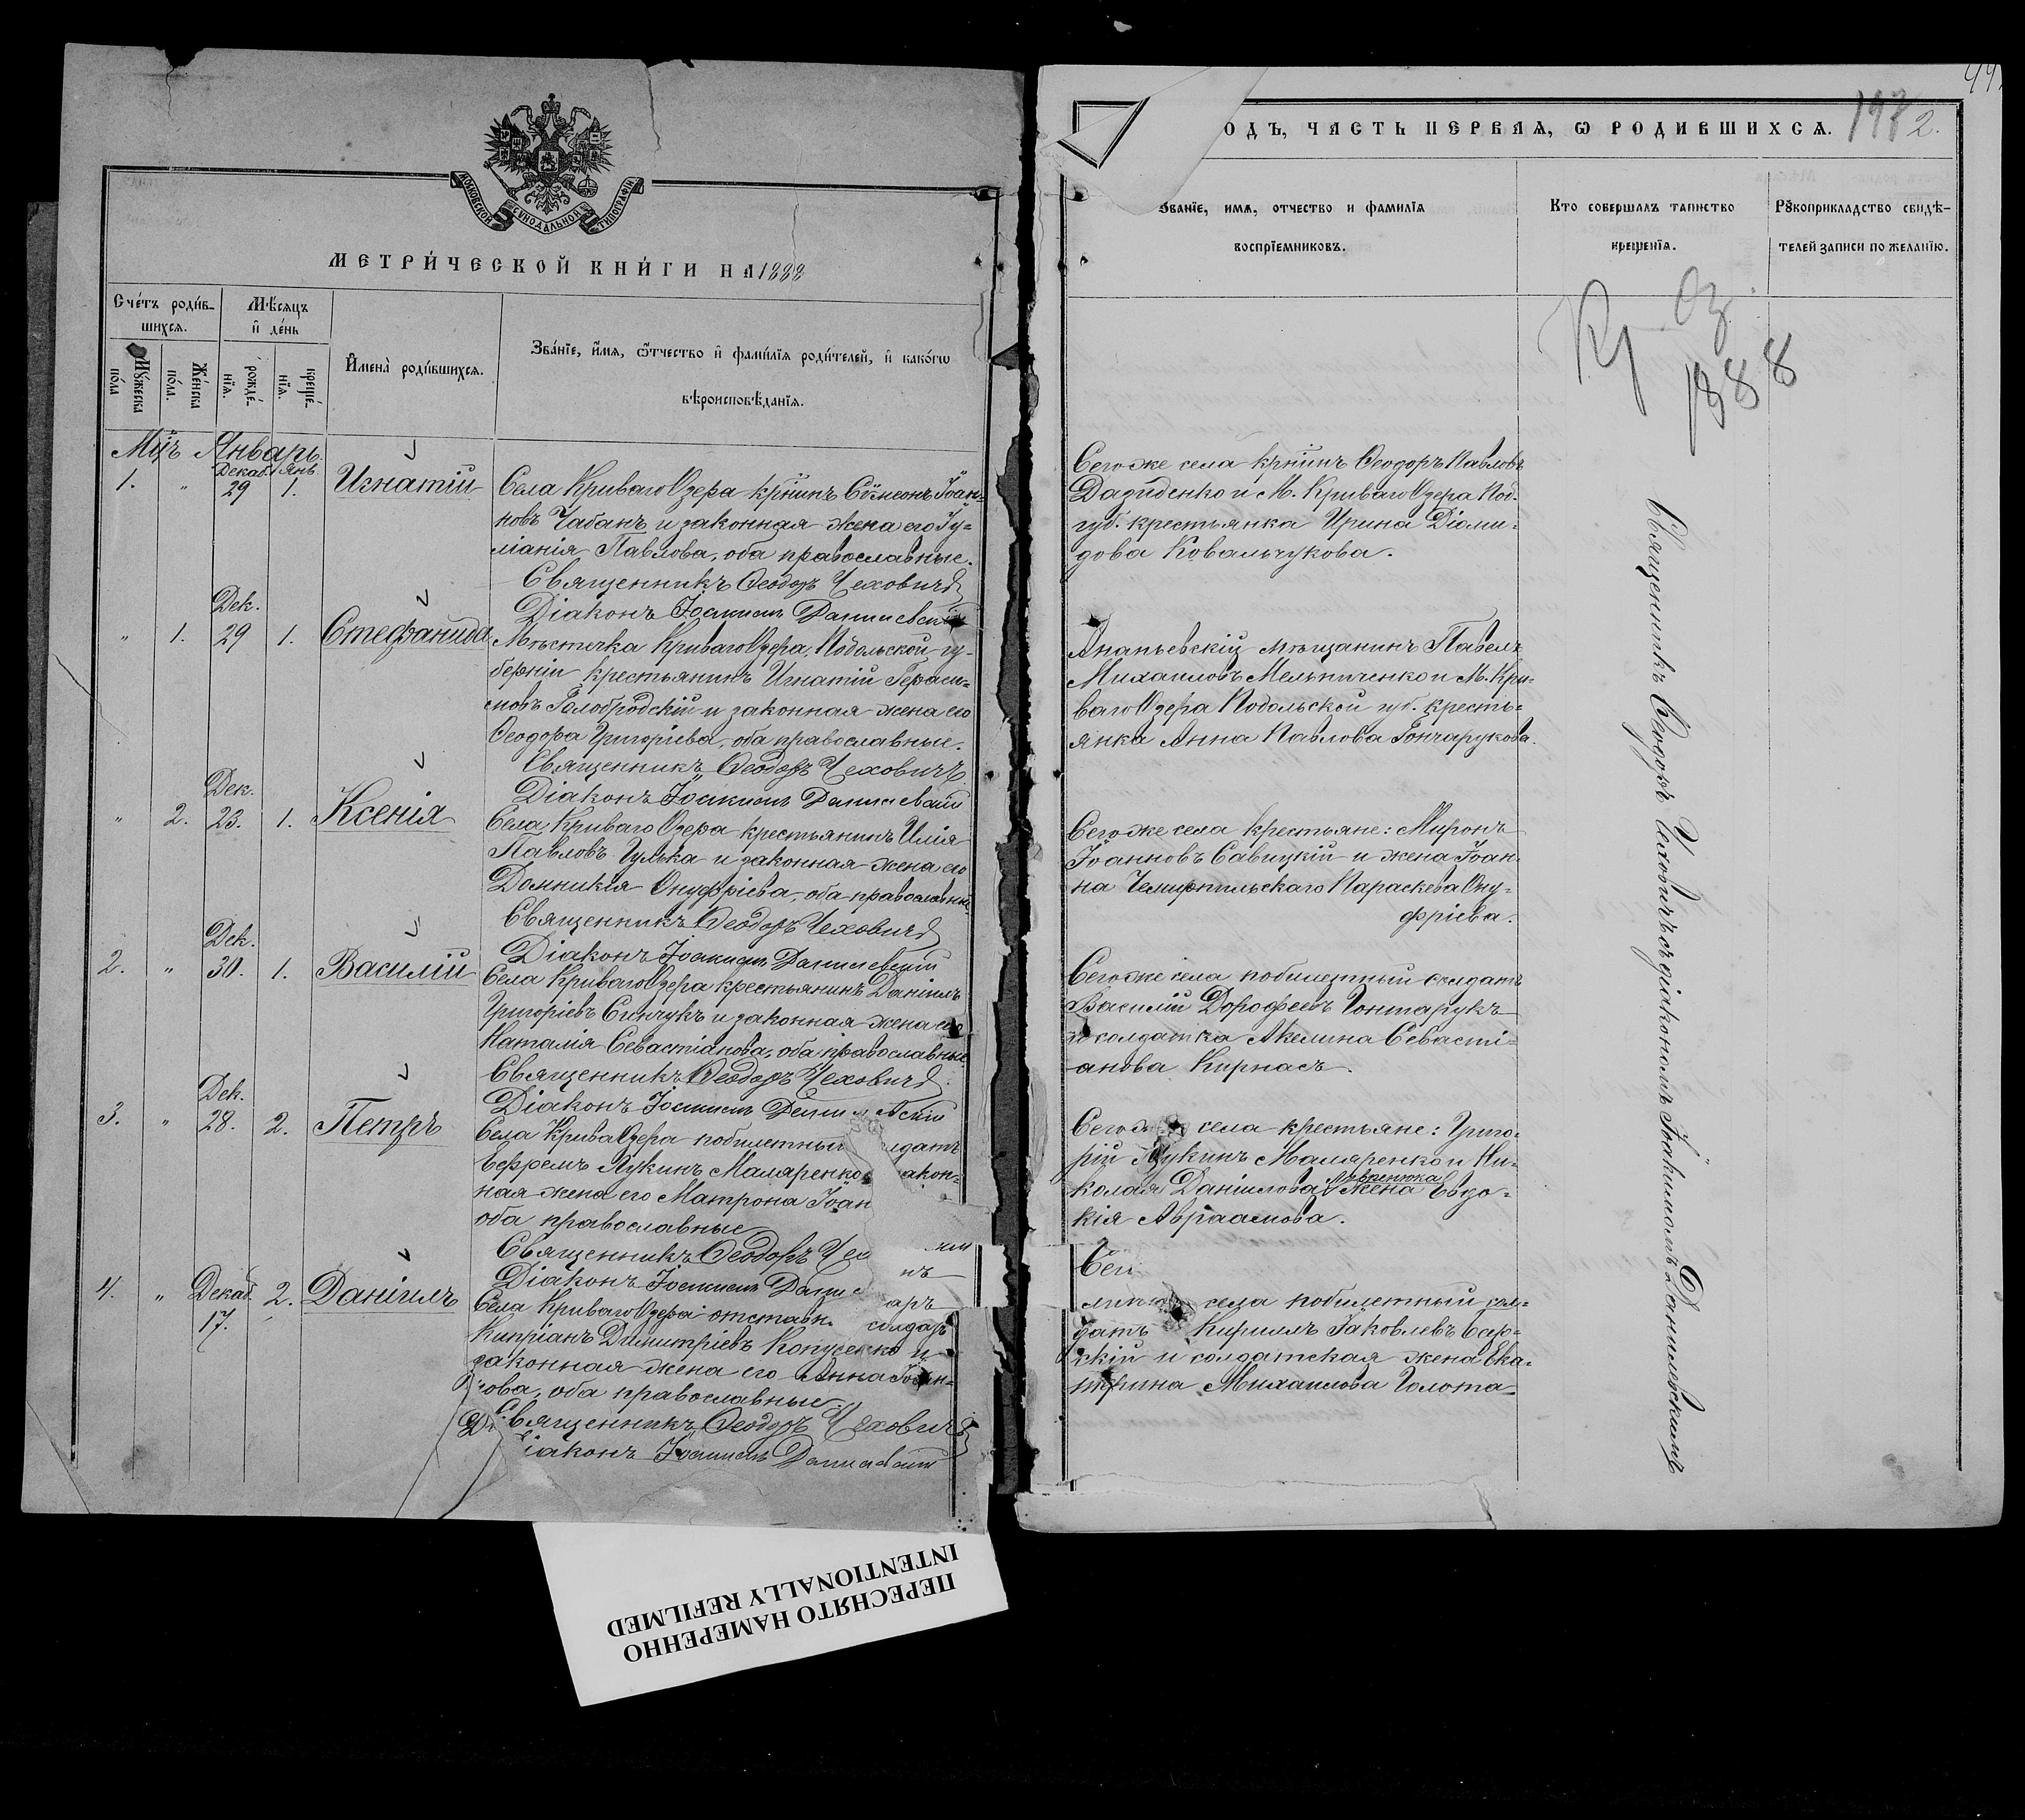 МОСКОВСКОЙ СУНОДАЛЬНОЙ ТИПОГРАФІИ
МЕТРИ́ЧЕСКОЙ КНИ́ГИ НА 1888
Сче́тъ роди́в-
шихсѧ.
Мѣ́сѧцъ
и҆ де́нь
Мꙋ́жеска
по́ла
Же́нска
по́ла.
рожде́-
нїѧ.
креще́-
нїѧ.
И҆мена̀ роди́вшихсѧ.
Зва́нїе, и҆́мѧ, ѻ҆́тчество и҆ фами́лїѧ роди́телей, и҆ како́гѡ
вѣроисповѣ́данїѧ.
Мц̃ъ Январь.
1. " Декаб. 29 Янв. 1. Игнатій
Села Криваго Озера кр̃нинъ Сѵмеонъ Іоан-
новъ Чабанъ и законная жена его Іу-
ліанія Павлова, оба православные.
Священникъ Ѳеодоръ Чеховичъ
Діаконъ Іоакимъ Данилевскій
" 1. Дек. 29 1. Стефанида
Мѣстечка Криваго Озера, Подольской гу-
берніи крестьянинъ Игнатій Гераси-
мовъ Голобродскій и законная жена его
Ѳеодора Григоріева, оба православные.
Священникъ Ѳеодоръ Чеховичъ
Діаконъ Іоакимъ Данилевскій
" 2. Дек. 23. 1. Ксенія
Села Криваго Озера крестьянинъ Илія
Павловъ Гулька и законная жена его
Домникія Онуфріева, оба православные.
Священникъ Ѳеодоръ Чеховичъ
Діаконъ Іоакимъ Данилевскій
2. " Дек. 30. 1. Василій
Села Криваго Озера крестьянинъ Даніилъ
Григоріевъ Синчукъ и законная жена его
Наталія Севастіанова, оба православные.
Священникъ Ѳеодоръ Чеховичъ
Діаконъ Іоакимъ Данилевскій
3. " Дек. 28. 2. Петръ
Села Крива Озера побилетный лдатъ
Ефремъ Лукинъ Маляренко акон-
ная жена его Матрона Іоан
оба православные
Священникъ Ѳеодоръ Чех
Діаконъ Іоакимъ Данил
4. " Декаб. 17. 2. Даніилъ
Села Криваго Озера отставн. солдатъ
Кипріанъ Димитріевъ Копусенко и
законная жена его Анна Іоан-
нова, оба православные.
Священникъ Ѳеодоръ Чеховичъ
Діаконъ Іоакимъ Данилевскій
ПЕРЕСНЯТО НАМЕРЕННО
INTENTIONALLY REFILMED
ОДЪ, ЧАСТЬ ПЕРВАѦ, Ѡ РОДИВШИХСѦ.
197 2.
44
Званїе, имѧ, отчество и фамилїѧ
воспрїемниковъ.
Кто совершалъ таинство
крещенїѧ.
Рꙋкоприкладство свидѣ-
телей записи по желанїю.
Кр. Оз.
1888
Сегоже села кр̃нинъ Ѳеодоръ Павловъ
Давиденко и М. Криваго Озера Под.
губ. крестьянка Ирина Діоми-
дова Ковальчукова.
Ананьевскій мѣщанинъ Павелъ
Михаиловъ Мельниченко и М. Кри-
ваго Озера Подольской губ. кресть-
янка Анна Павлова Гончарукова.
Сегоже села крестьяне: Миронъ
Іоанновъ Савицкій и жена Іоан-
на Чемирпильскаго Параскева Ону-
фріева.
Сегоже села побилетный солдатъ
Василій Дорофеевъ Гонтарукъ
и солдатка Акелина Севасті-
анова Кирнасъ.
Сегож села крестьяне: Григо-
рій Лукинъ Маляренко и Ни-
колая Даніилова Лавренюка жена Евдо-
кія Авраамова.
Сег
села побилетный сол-
датъ Кириллъ Іаковлевъ
скій и солдатская жена Ека-
терина Михаилова Голота.
Священникъ Ѳеодоръ Чеховичъ съ діакономъ Іоакимомъ Данилевскимъ